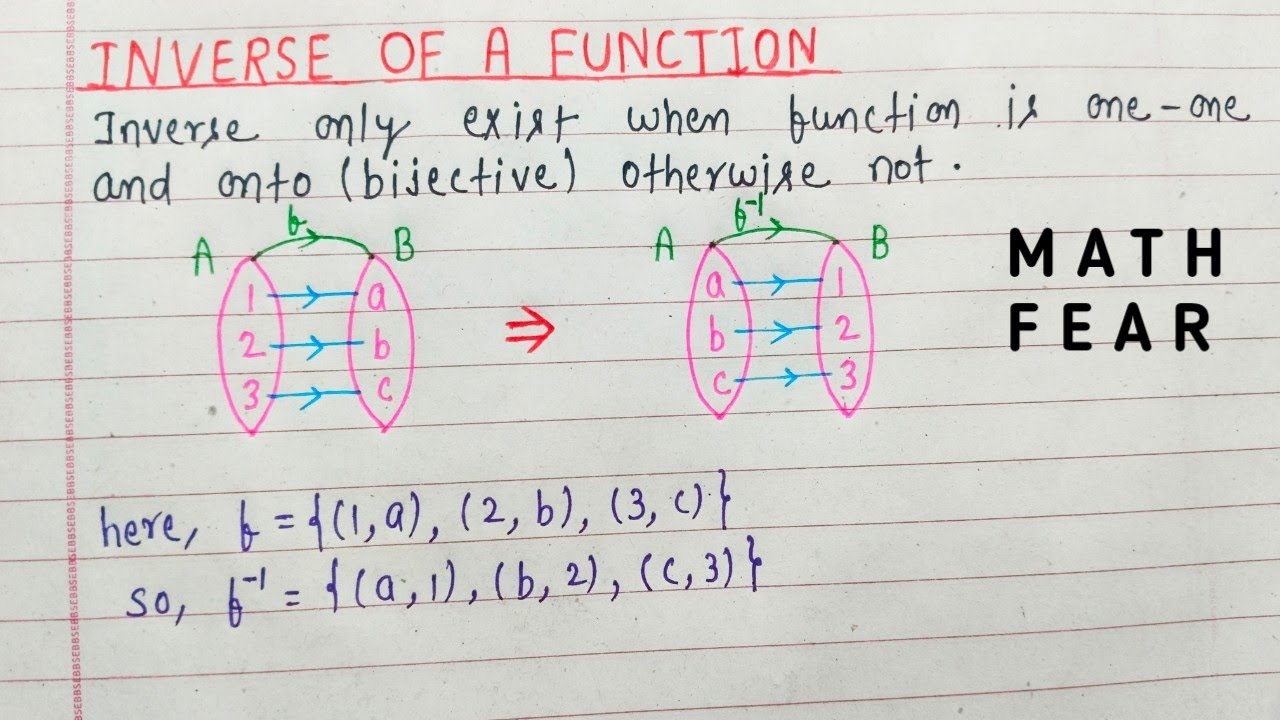 INVERSE OF A FUNCTION
Inverse only exist when function is one-one
and onto (bijective) otherwise not.
A f B
1 a
2 b
3 c
⇒
A f⁻¹ B
a 1
b 2
c 3
MATH
FEAR
here, f = {(1, a), (2, b), (3, c)}
so, f⁻¹ = {(a, 1), (b, 2), (c, 3)}